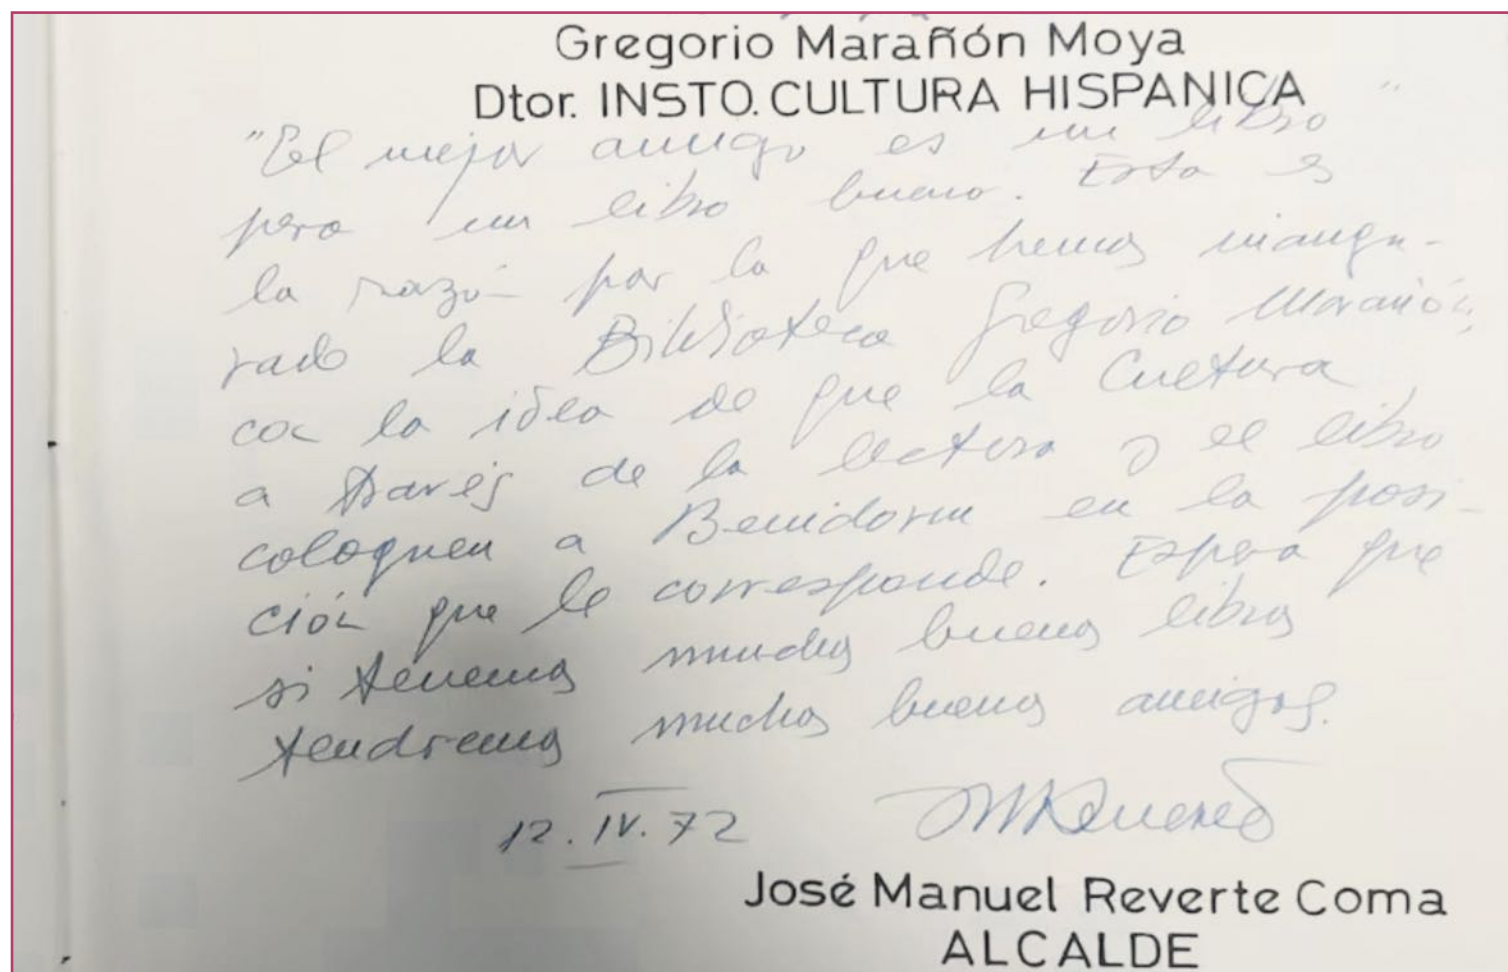 Gregorio Marañón Moya
Dtor. INSTO. CULTURA HISPANICA
"El mejor amigo es un libro"
pero un libro bueno. Esta es
la razón por la que hemos inaugu-
rado la Biblioteca Gregorio Marañón,
con la idea de que la Cultura
a través de la lectura y el libro
coloquen a Benidorm en la posi-
ción que le corresponde. Espero que
si tenemos muchos buenos libros
tendremos muchos buenos amigos.
12.IV.72
José Manuel Reverte Coma
ALCALDE